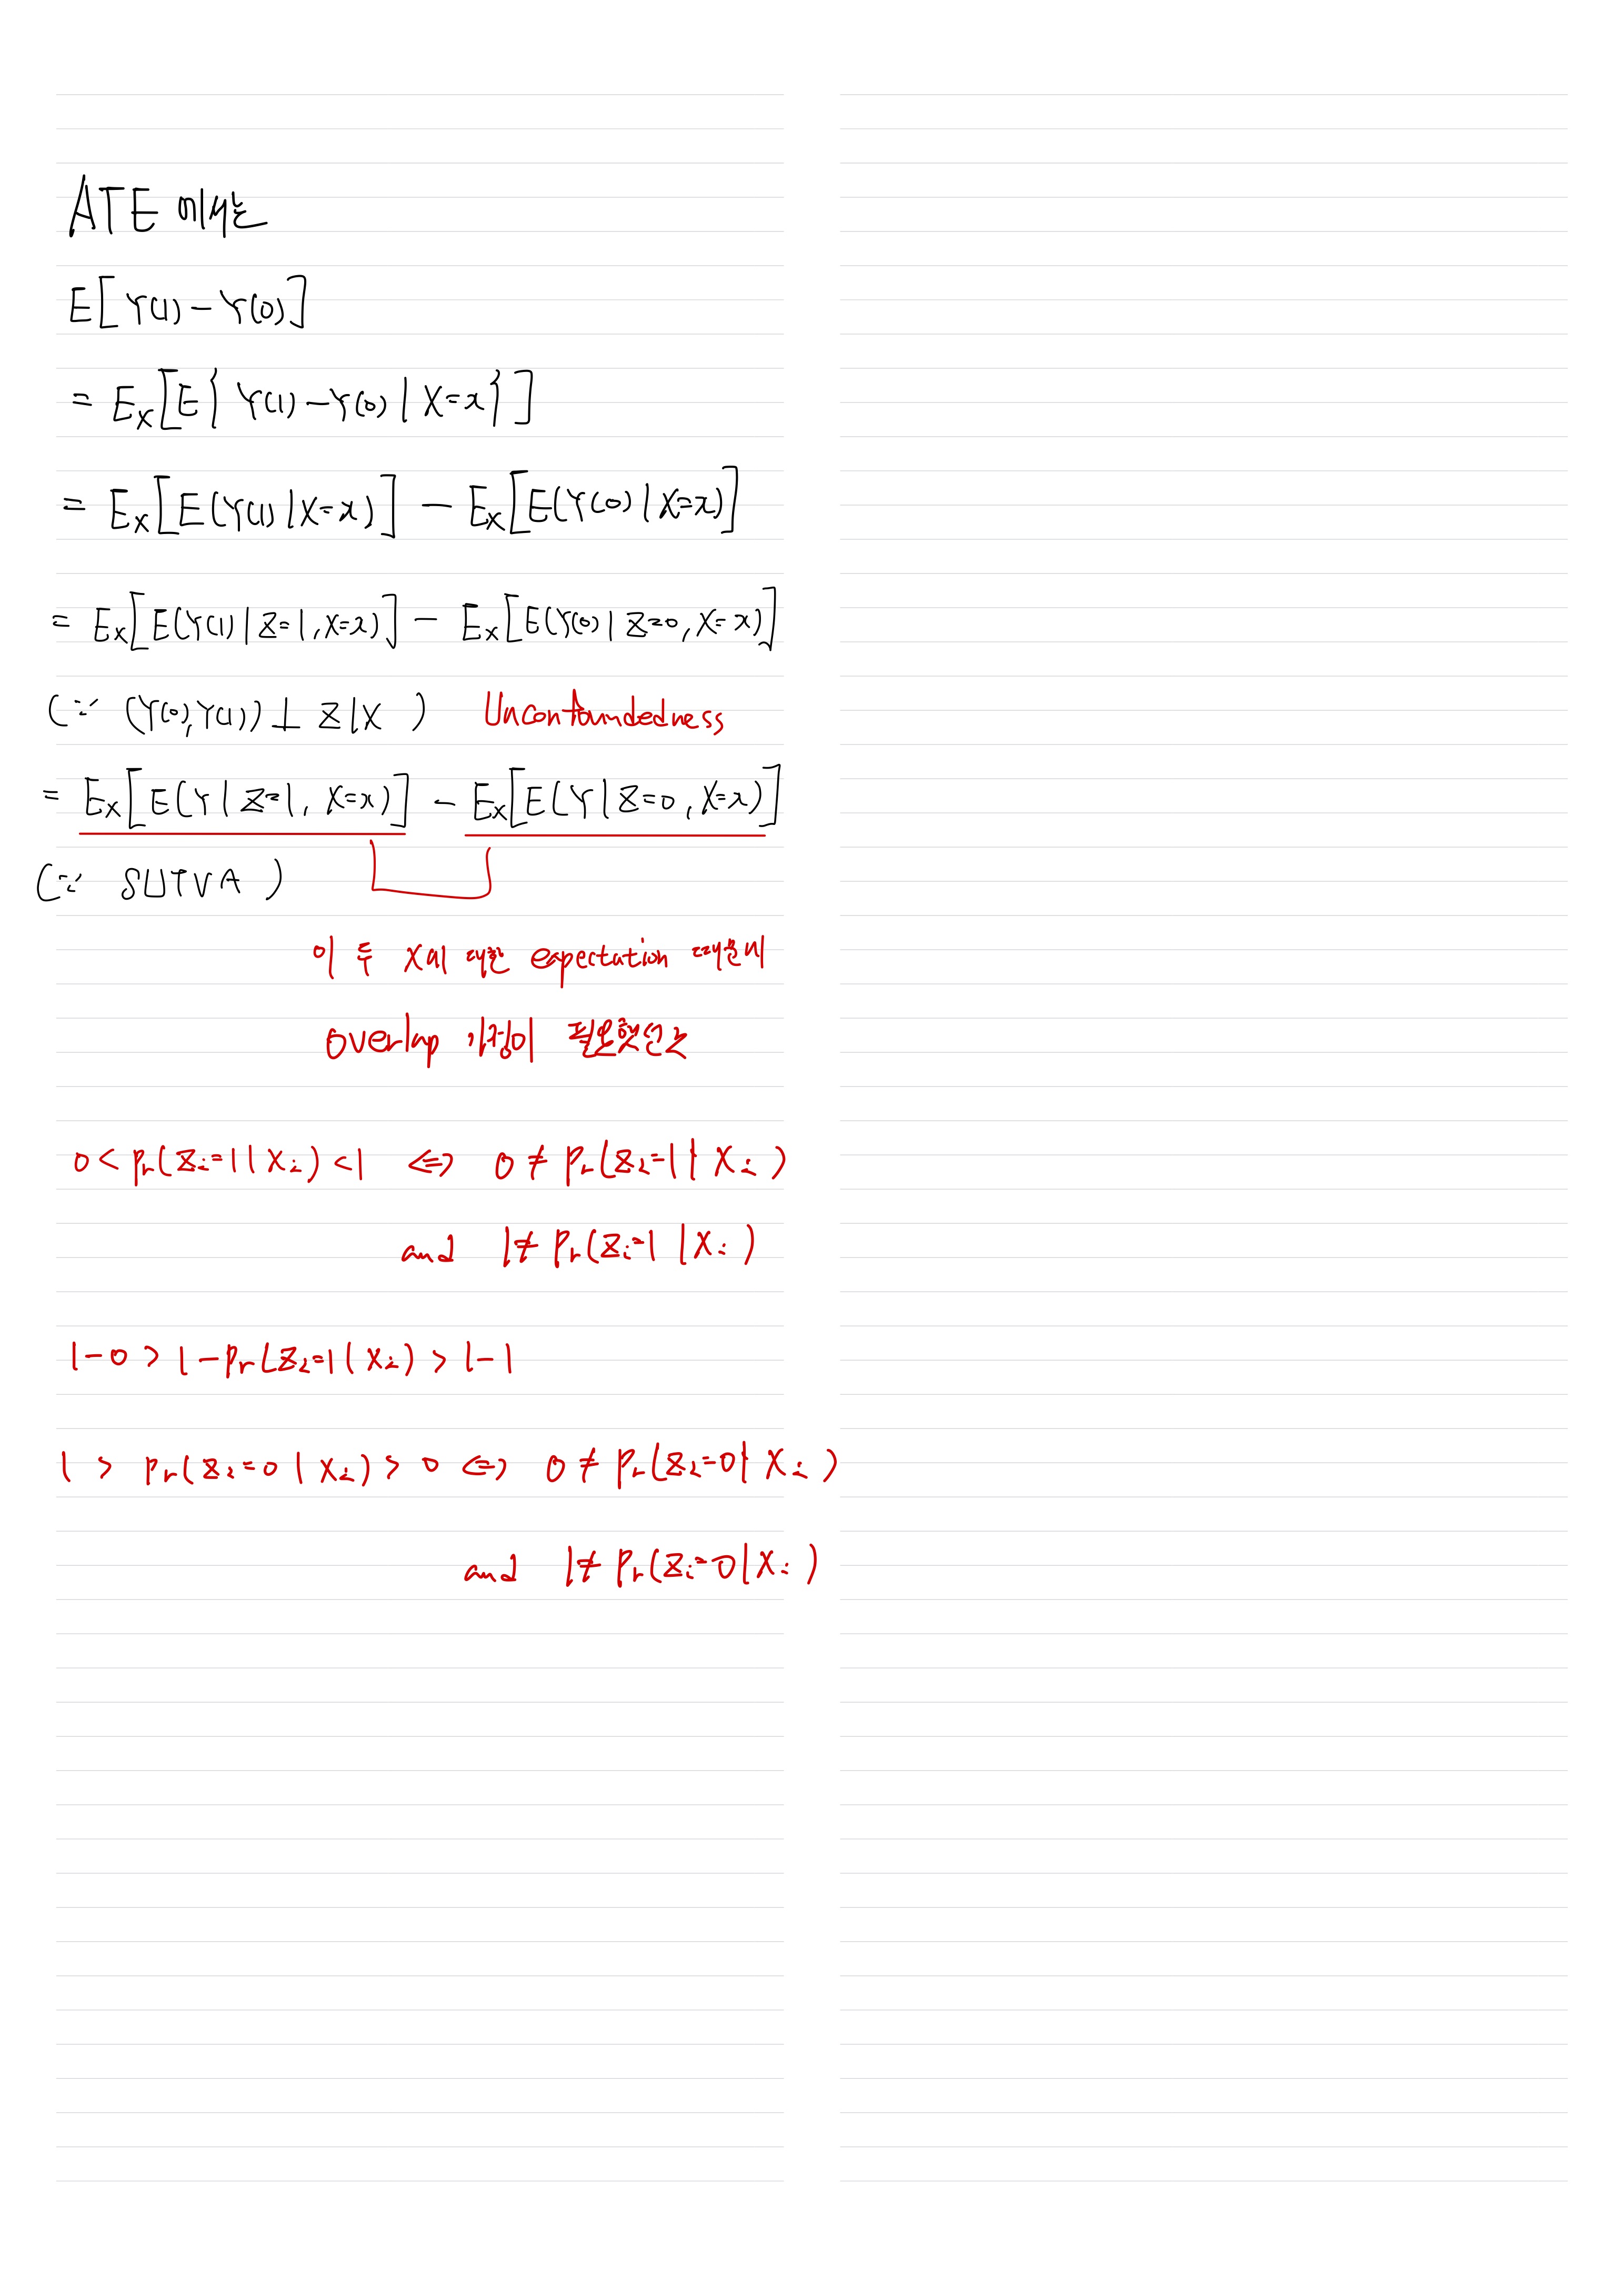 ATE 에서는
E[Y(1)-Y(0)]
= E_X[E{Y(1)-Y(0) | X=x}]
= E_X[E(Y(1) | X=x)] - E_X[E(Y(0) | X=x)]
= E_X[E(Y(1) | Z=1, X=x)] - E_X[E(Y(0) | Z=0, X=x)]
(∵ (Y(0), Y(1)) ⊥ Z | X ) Unconfoundedness
= E_X[E(Y | Z=1, X=x)] - E_X[E(Y | Z=0, X=x)]
(∵ SUTVA )
이 두 X에 대한 expectation 때문에
overlap 가정이 필요했던 것
0 < Pr(Z_i=1 | X_i) < 1 ⇔ 0 ≠ Pr(Z_i=1 | X_i )
and 1 ≠ Pr(Z_i=1 | X_i )
1-0 > 1-Pr(Z_i=1 | X_i) > 1-1
1 > Pr(Z_i=0 | X_i) > 0 ⇔ 0 ≠ Pr(Z_i=0 | X_i )
and 1 ≠ Pr(Z_i=0 | X_i )